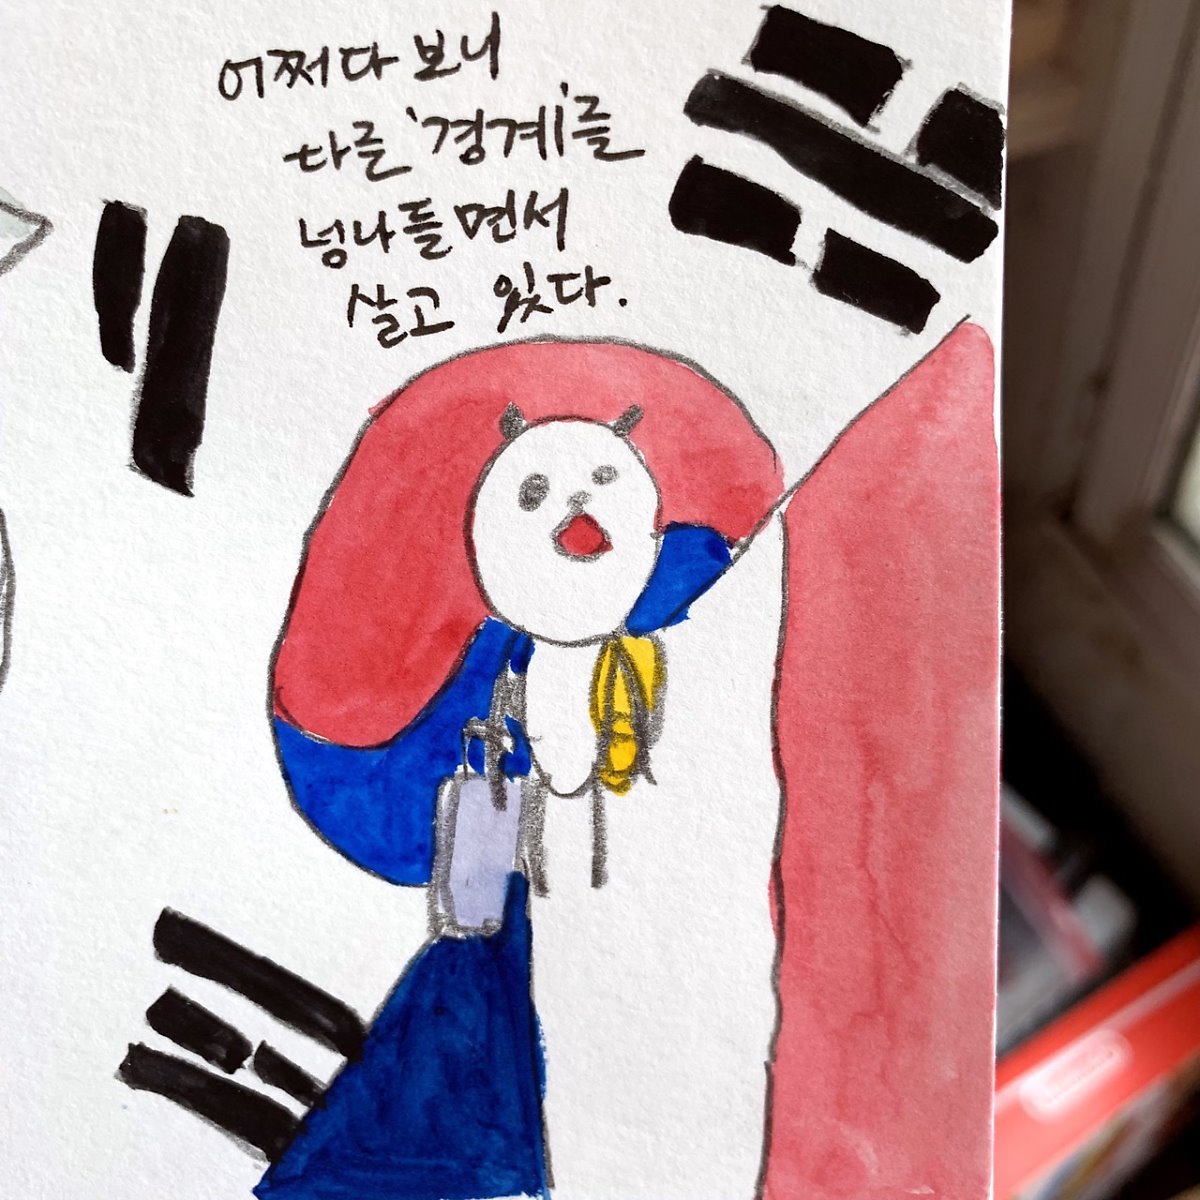 어쩌다 보니
다들 '경계'를
넘나들면서
살고 있다.